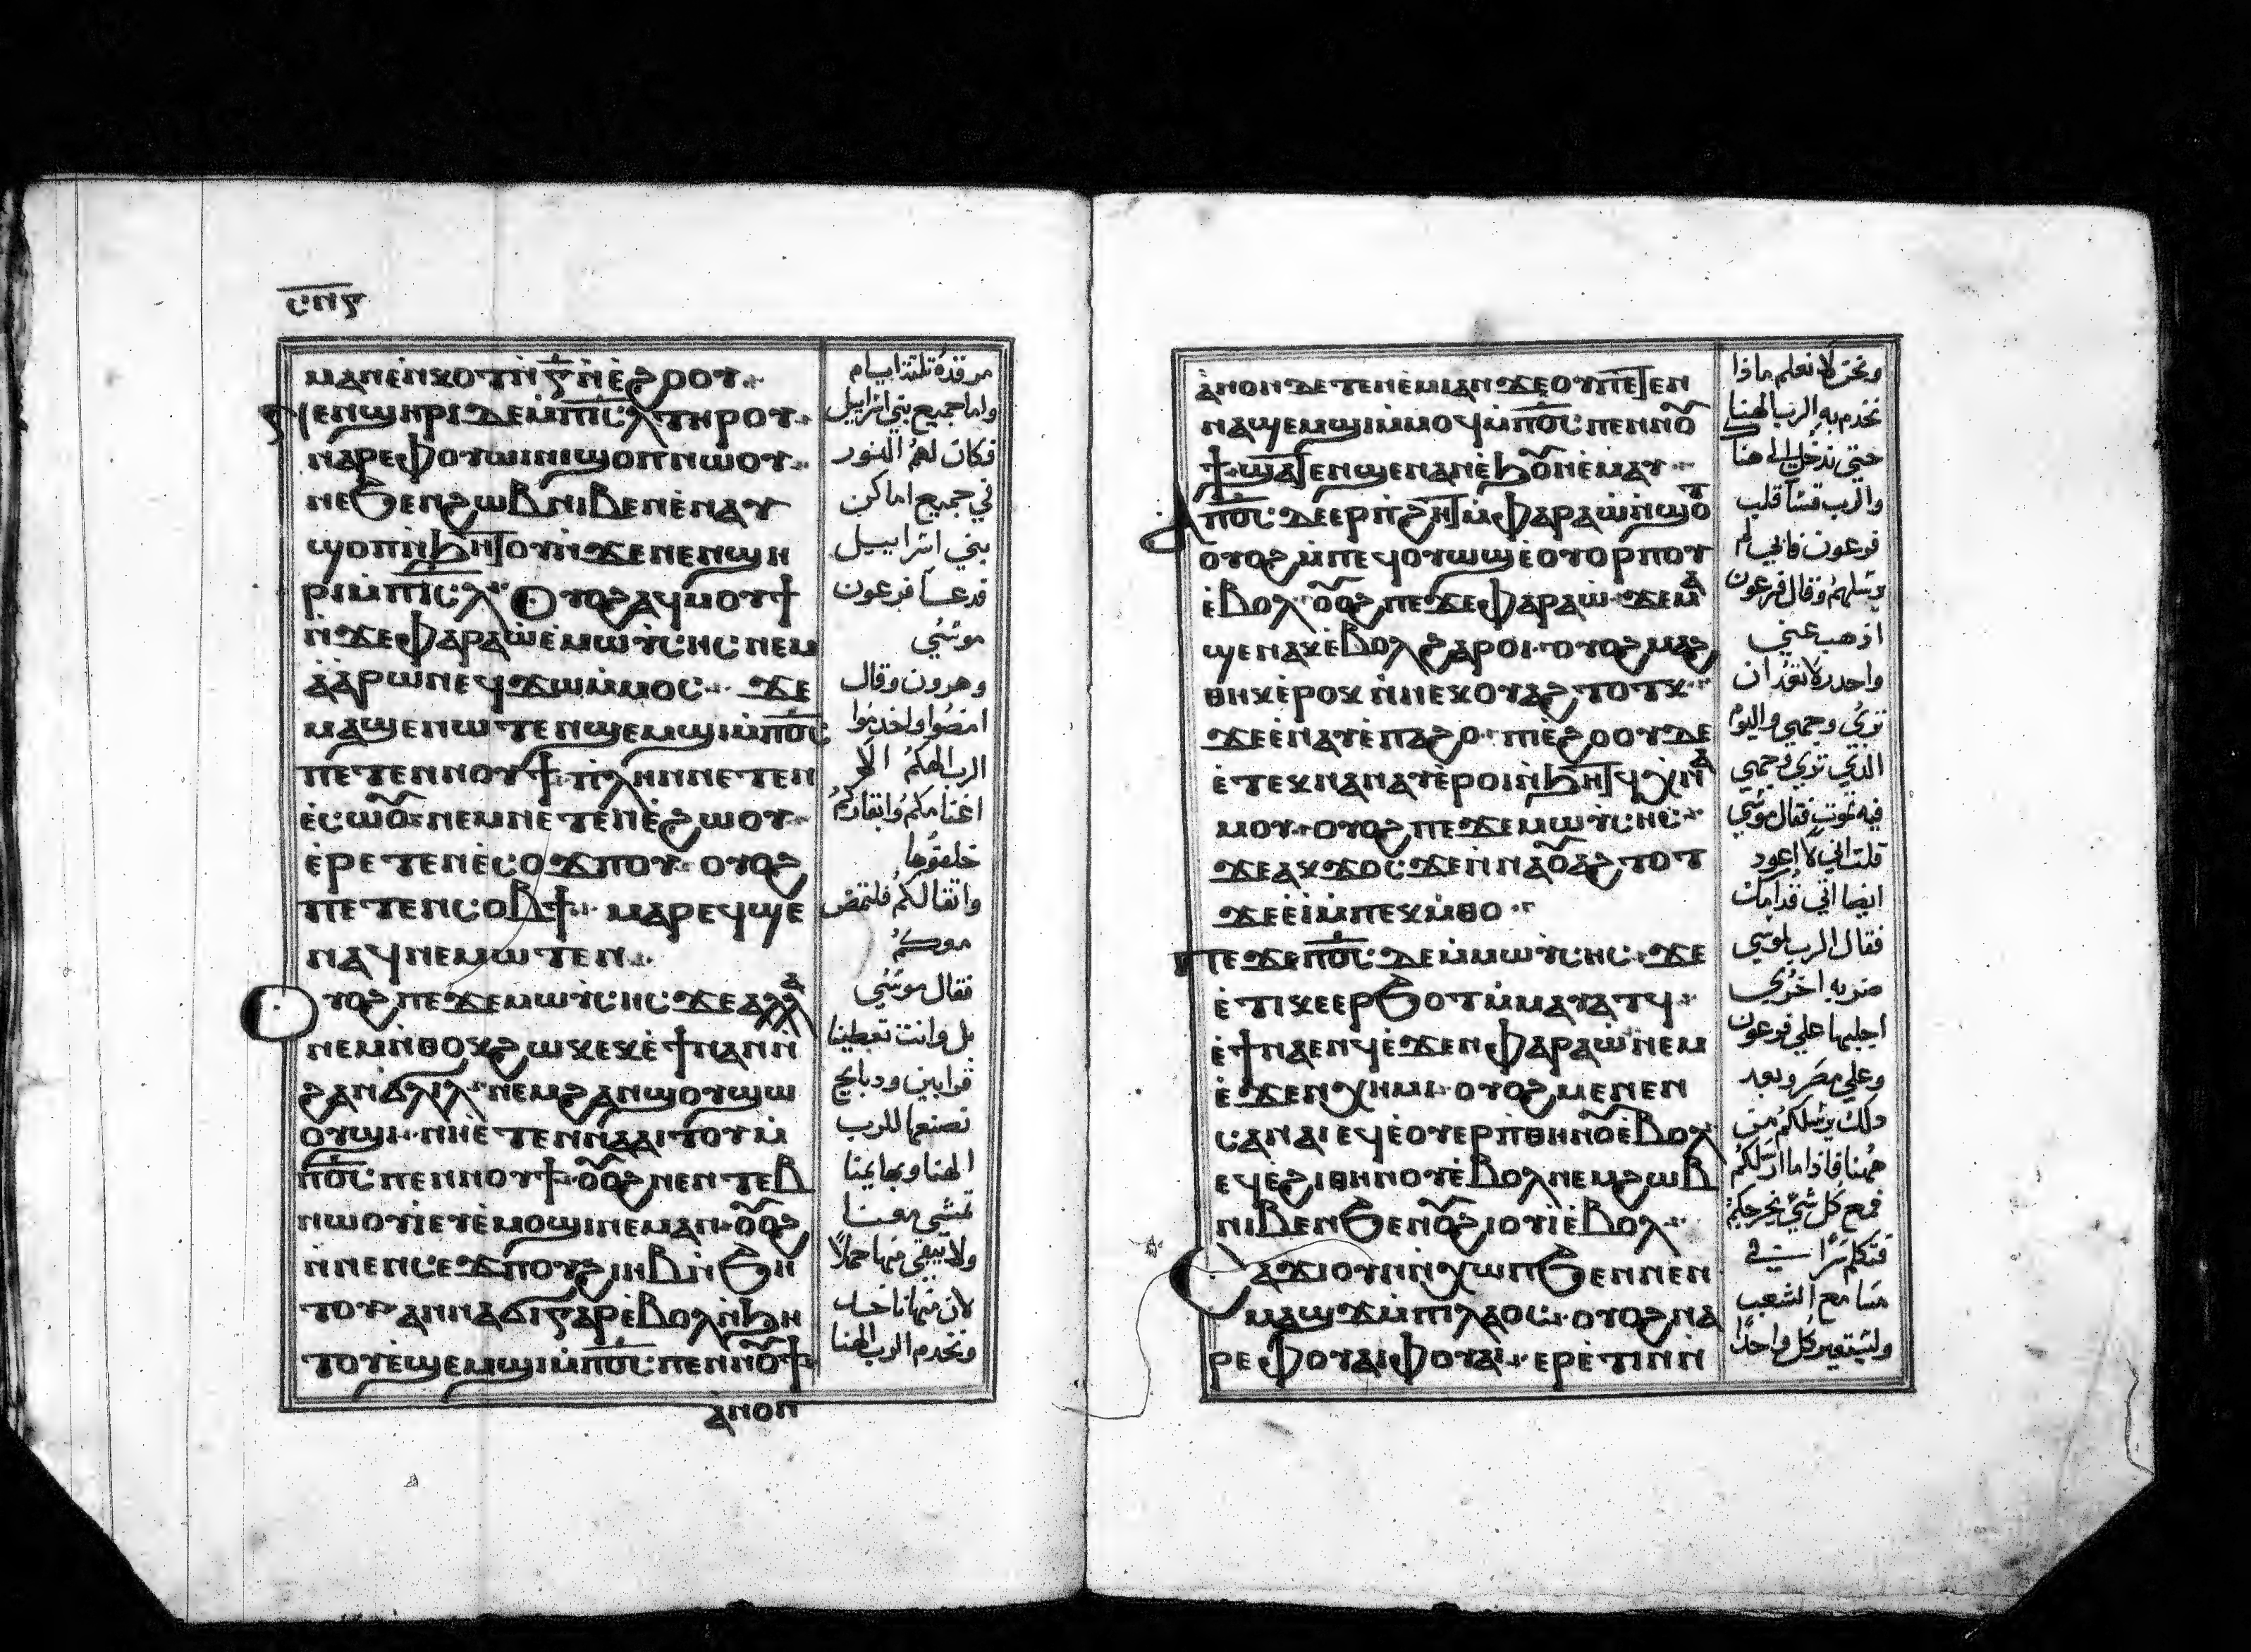 ⲥⲡⲋ
ⲙⲁⲛⲉⲛⲕⲟⲧ ⲛ̀ⲅ̅ ⲛ̀ⲉ̀ϩⲟⲟⲩ
ⲛⲉⲛϣⲏⲣⲓ ⲇⲉ ⲙ̀ⲡⲓⲥ̅ⲗ̅ ⲧⲏⲣⲟⲩ
ⲛⲁⲣⲉ ⲫⲟⲩⲱⲓⲛⲓ ϣⲟⲡ ⲛⲱⲟⲩ
ⲡⲉ ϧⲉⲛ ϩⲱⲃ ⲛⲓⲃⲉⲛ ⲉ̀ⲛⲁⲩ
ϣⲟⲡ ⲛ̀ϧⲏⲧⲟⲩ ⲛ̀ϫⲉ ⲛⲉⲛϣⲏ
ⲣⲓ ⲙ̀ⲡⲓⲥ̅ⲗ̅ Ⲟⲩⲟϩ ⲁϥⲙⲟⲩϯ
ⲛ̀ϫⲉ ⲫⲁⲣⲁⲱ̀ ⲉ̀ⲙⲱⲩ̀ⲥⲏⲥ ⲛⲉⲙ
ⲁ̀ⲁ̀ⲣⲱⲛ ⲉϥϫⲱ ⲙ̀ⲙⲟⲥ ϫⲉ
ⲙⲁϣⲉⲛⲱⲧⲉⲛ ϣⲉⲙϣⲓ ⲙ̀ⲡⲟ̅ⲥ̅
ⲡⲉⲧⲉⲛⲛⲟⲩϯ ⲡⲗⲏⲛ ⲛⲉⲧⲉⲛ
ⲉ̀ⲥⲱⲟ̃ ⲛⲉⲙ ⲛⲉⲧⲉⲛⲉ̀ϩⲱⲟⲩ
ⲉ̀ⲣⲉⲧⲉⲛⲉ̀ⲥⲟϫⲡⲟⲩ ⲟⲩⲟϩ
ⲡⲉⲧⲉⲛⲥⲟⲃϯ ⲙⲁⲣⲉϥϣⲉ
ⲛⲁϥ ⲛⲉⲙⲱⲧⲉⲛ
Ⲟⲩⲟϩ ⲡⲉϫⲉ ⲙⲱⲩ̀ⲥⲏⲥ ϫⲉ ⲁⲗⲗⲁ
ⲛⲉⲙ ⲛ̀ⲑⲟⲕ ϩⲱⲕ ⲉⲕⲉ̀ϯ ⲛⲁⲛ ⲛ̀
ϩⲁⲛϭⲗⲓⲗ ⲛⲉⲙ ϩⲁⲛϣⲟⲩϣⲱ
ⲟⲩϣⲓ ⲛⲏⲉ̀ⲧⲉⲛⲛⲁⲁⲓⲧⲟⲩ ⲙ̀
ⲡⲟ̅ⲥ̅ ⲡⲉⲛⲛⲟⲩϯ ⲟⲟ̃ϩ ⲛⲉⲛⲧⲉⲃ
ⲛⲱⲟⲩⲓ ⲉⲩⲉ̀ⲙⲟϣⲓ ⲛⲉⲙⲁⲛ ⲟⲟ̃ϩ
ⲛ̀ⲛⲉⲛⲥⲉϫⲡ ⲟⲩϩⲓⲏⲃ ⲛ̀ϧⲏ
ⲧⲟⲩ ⲁⲛⲛⲁϭⲓ ⲅⲁⲣ ⲉ̀ⲃⲟⲗ ⲛ̀ϧⲏ
ⲧⲟⲩ ⲉ̀ϣⲉⲙϣⲓ ⲙ̀ⲡⲟ̅ⲥ̅ ⲡⲉⲛⲛⲟ̃ϯ
ⲁ̀ⲛⲟⲛ
مرقده تلتة ايام
واما جميع بني اسراييل
فكان لهم النور
في جميع اماكن
بني اسراييل
فدعا فرعون
موسي
وهرون وقال
امضوا واخدموا
الرب الهكم الا
اغنامكم وابقاركم
خلفوها
واتقالكم فلتمض
معكم
فقال موسي
بل وانت تعطينا
قرابين ودبايح
نصنعها للرب
الهنا وبهايمنا
تمشي معنا
ولا يبقي منها حملا
لان منها ناخد
ونخدم الرب الهنا
ⲁ̀ⲛⲟⲛ ⲇⲉ ⲧⲉⲛⲉ̀ⲙⲓ ⲁⲛ ϫⲉ ⲟⲩ ⲡⲉⲧⲉⲛ
ⲛⲁϣⲉⲙϣⲓ ⲙ̀ⲙⲟϥ ⲙ̀ⲡⲟ̅ⲥ̅ ⲡⲉⲛⲛⲟ̃
ϯ ϣⲁⲧⲉⲛϣⲉⲛⲁⲛ ⲉ̀ϧⲟ̃ⲛ ⲉ̀ⲙⲁⲩ
Ⲁ̀ ⲡⲟ̅ⲥ̅ ⲇⲉ ⲉⲣ ⲡϩⲏⲧ ⲙ̀ⲫⲁⲣⲁⲱ̀ ⲛ̀ϣⲟⲧ
ⲟⲩⲟϩ ⲙ̀ⲡⲉϥⲟⲩⲱϣ ⲉ̀ⲟⲩⲟⲣⲡⲟⲩ
ⲉ̀ⲃⲟⲗ ⲟⲟ̃ϩ ⲡⲉϫⲉ ⲫⲁⲣⲁⲱ ϫⲉ ⲙⲁ
ϣⲉⲛⲁⲕ ⲉ̀ⲃⲟⲗ ϩⲁⲣⲟⲓ ⲟⲩⲟϩ ⲙⲁϩ
ⲑⲏⲕ ⲉ̀ⲣⲟⲕ ⲛ̀ⲛⲉⲕⲟⲩⲁϩ ⲧⲟⲧⲕ
ϫⲉ ⲉ̀ⲛⲁⲩ ⲉ̀ⲡⲁϩⲟ ⲡⲓⲉ̀ϩⲟⲟⲩ ⲇⲉ
ⲉ̀ⲧⲉⲕⲛⲁⲛⲁⲩ ⲉ̀ⲣⲟⲓ ⲛ̀ϧⲏⲧϥ ⲭⲛⲁ
ⲙⲟⲩ ⲟⲩⲟϩ ⲡⲉϫⲉ ⲙⲱⲩ̀ⲥⲏⲥ
ϫⲉ ⲁⲕϫⲟⲥ ϫⲉ ⲛ̀ⲛⲁⲟ̃ⲁϩ ⲧⲟⲧ
ϫⲉ ⲉ̀ⲓ̀ ⲙ̀ⲡⲉⲕⲙ̀ⲑⲟ
Ⲡⲉϫⲉ ⲡⲟ̅ⲥ̅ ⲇⲉ ⲙ̀ⲙⲱⲩ̀ⲥⲏⲥ ϫⲉ
ⲉ̀ⲧⲓ ⲕⲉⲉⲣϧⲟⲧ ⲙ̀ⲙⲁⲩⲁⲧϥ
ⲉ̀ϯⲛⲁⲉⲛϥ ⲉ̀ϫⲉⲛ ⲫⲁⲣⲁⲱ̀ ⲛⲉⲙ
ⲉ̀ϫⲉⲛ ⲭⲏⲙⲓ ⲟⲩⲟϩ ⲙⲉⲛⲉⲛ
ⲥⲁⲛⲁⲓ ⲉϥⲉ̀ⲟⲩⲉⲣⲡ ⲑⲏⲛⲟ̃ ⲉ̀ⲃⲟⲗ
ⲉϥⲉ̀ϩⲓ ⲑⲏⲛⲟⲩ ⲉ̀ⲃⲟⲗ ⲛⲉⲙ ϩⲱⲃ
ⲛⲓⲃⲉⲛ ϧⲉⲛ ⲟ̃ϩⲓⲟⲩⲓ̀ ⲉ̀ⲃⲟⲗ
Ⲥⲁϫⲓ ⲟⲩⲛ ⲛ̀ⲭⲱⲡ ϧⲉⲛ ⲛⲉⲛ
ⲙⲁϣϫ ⲙ̀ⲡⲓⲗⲁⲟⲥ ⲟⲩⲟϩ ⲙⲁ
ⲣⲉ ⲫⲟⲩⲁⲓ ⲫⲟⲩⲁⲓ ⲉⲣⲉ̀ⲧⲓⲛ ⲛ̀
ونحن لا نعلم ماذا
نخدم به الرب الهنا
حتي ندخل الي هنا
والرب قسا قلب
فرعون فابي لم
يرسلهم وقال فرعون
اذهب عني
واحدر لا تعد ان
تري وجهي واليوم
الذي تري وجهي
فيه تموت فقال موسي
قلت اني لا اعود
ايضا اتي قدامك
فقال الرب لموسي
ضربه اخري
اجلبها علي فرعون
وعلي مصر وبعد
ذلك يرسلكم من
ههنا فاذا ما ارسلكم
فمع كل شي يخرجكم
فتكلم سرا في
مسامع الشعب
وليستعير كل واحد